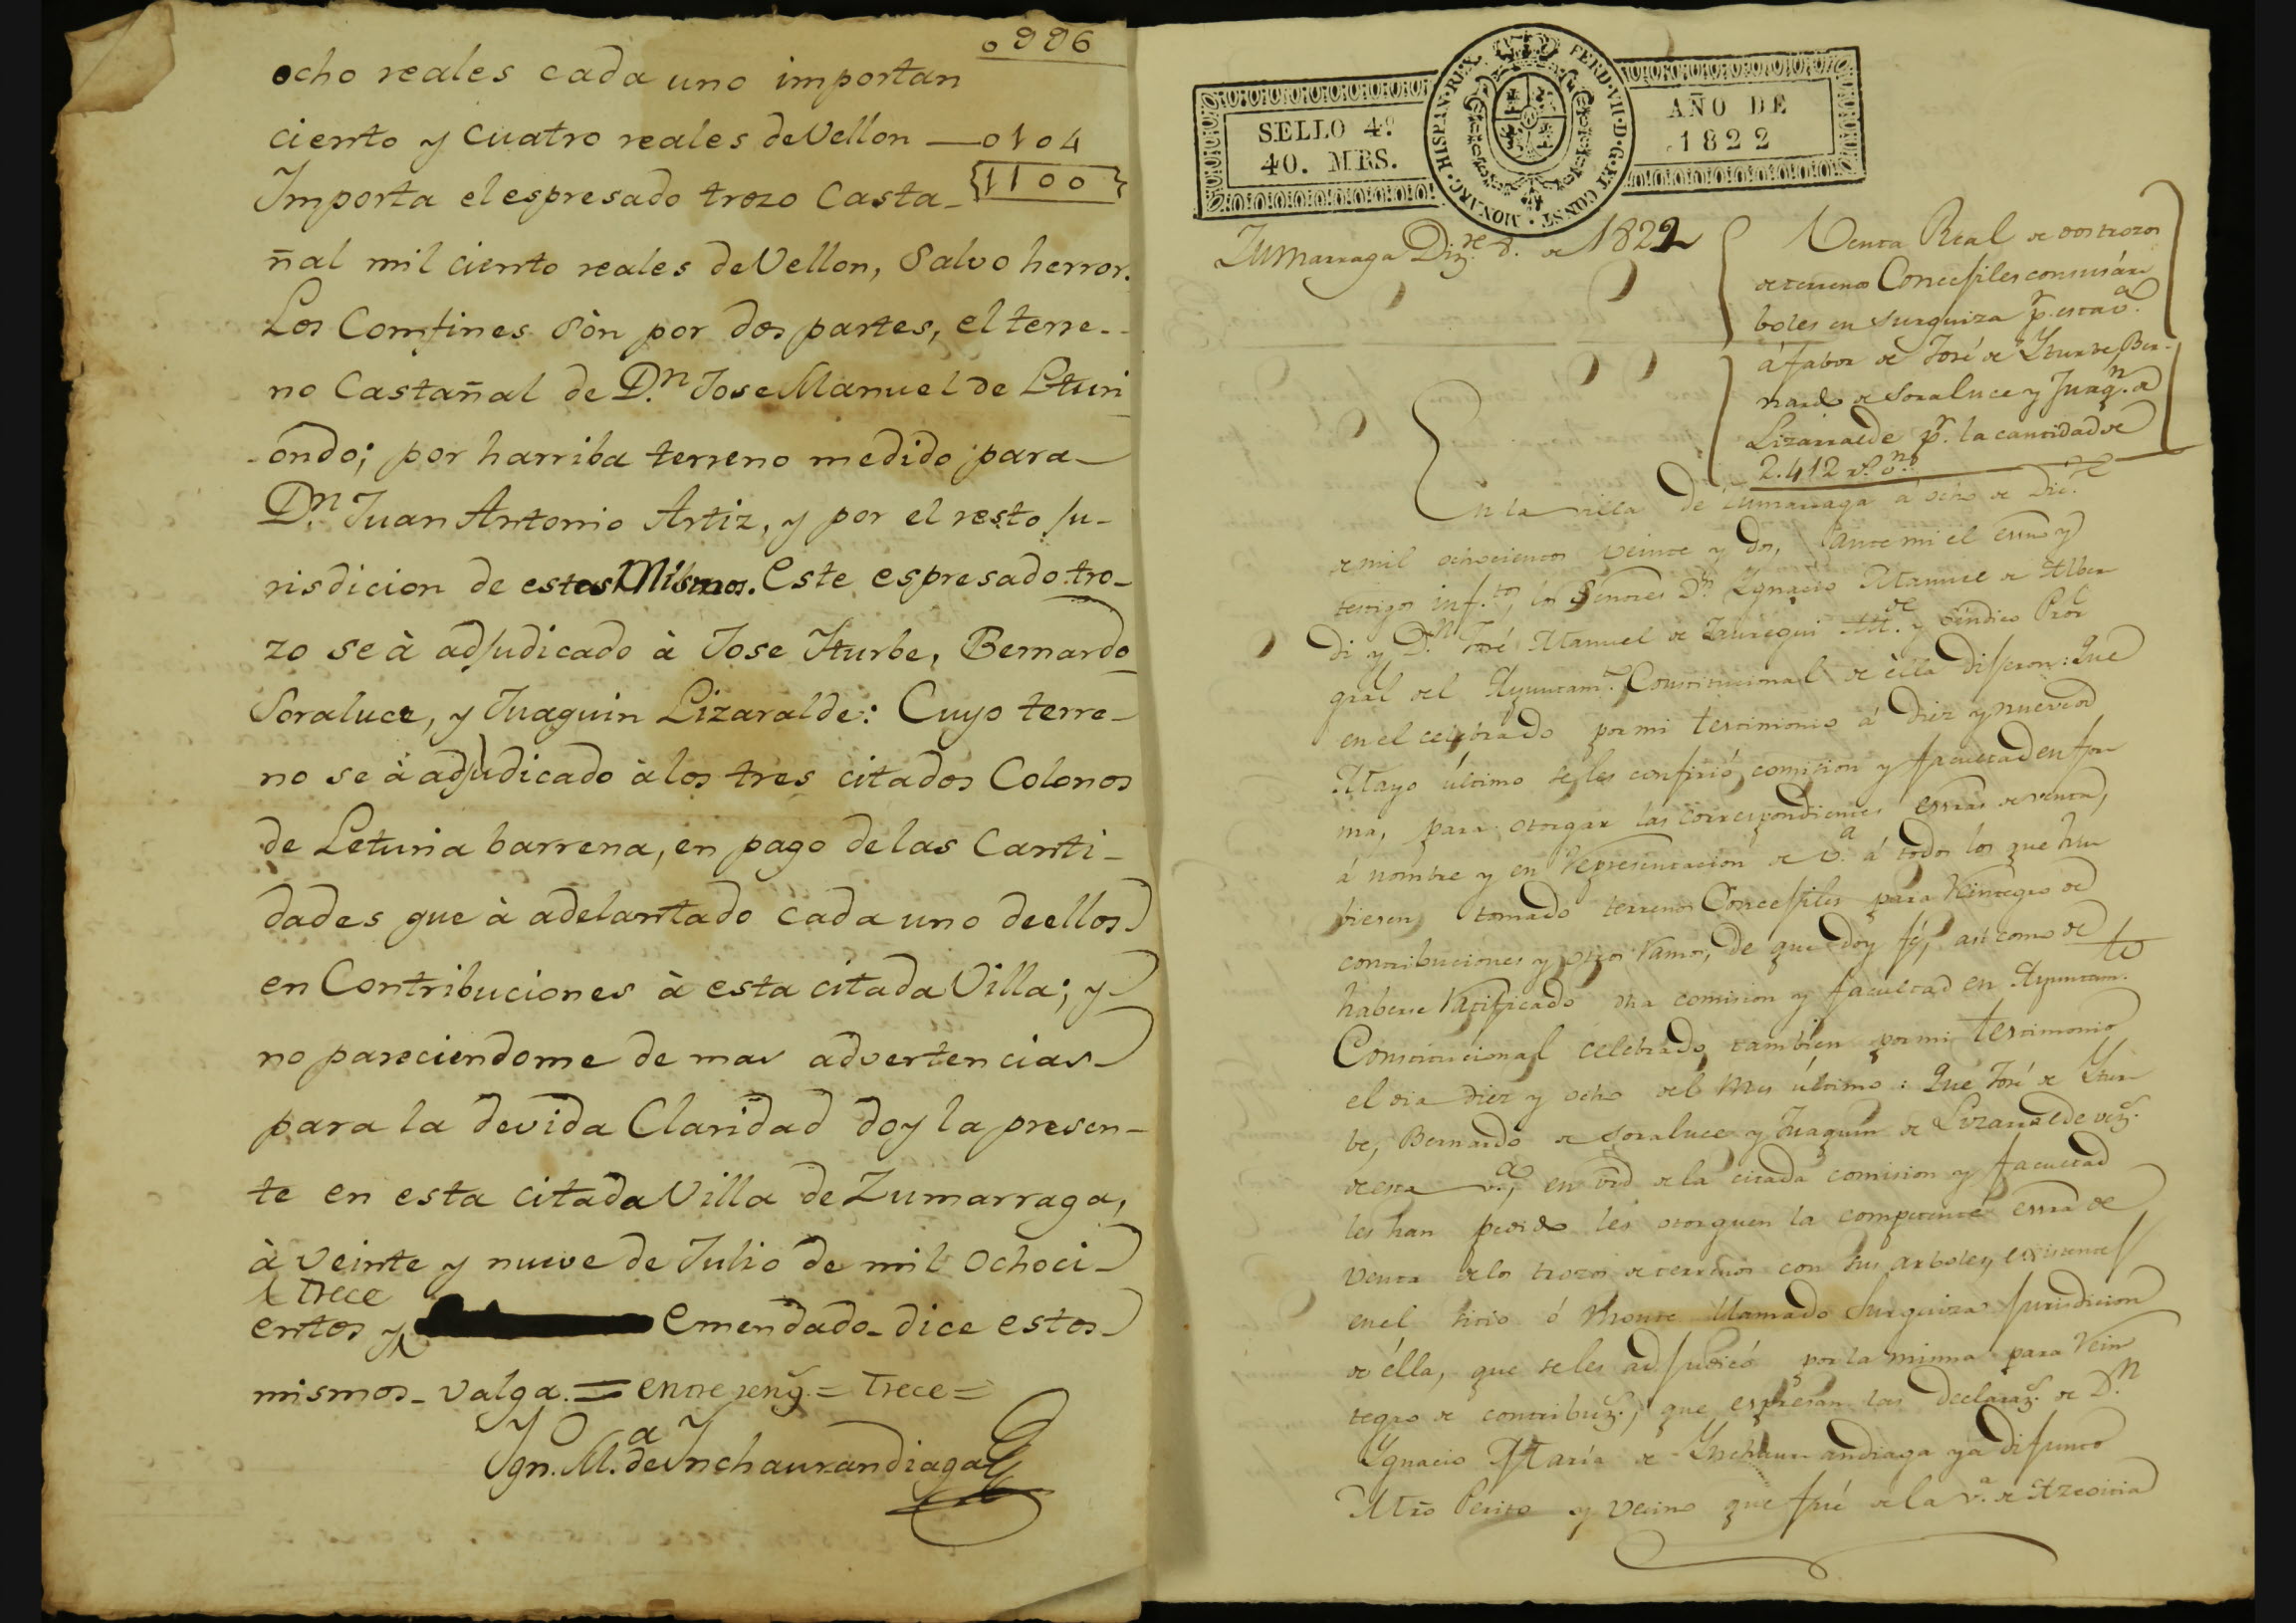 0996
ocho reales cada uno importan
ciento y cuatro reales de Vellon — 0104
Importa el espresado trozo Casta- {1100}
ñal mil ciento reales de Vellon, Salvo herror.
Los Comfines sòn por dos partes, el terre-
no Castañal de D.n Jose Manuel de Lturi
ondo; por harriba terreno medido para
D.n Juan Antonio Artiz, y por el resto ju-
risdicion de estos Mismos. Este espresado tro-
zo se à adjudicado à Jose Yturbe, Bernardo
Soraluce, y Juaquin Lizaralde: Cuyo terre-
no se à adjudicado à los tres citados Colonos
de Leturia barrena, en pago de las Canti-
dades que à adelantado cada uno de ellos
en Contribuciones à esta citada Villa; y
no pareciendome de mas advertencias
para la devida Claridad doy la presen-
te en esta citada Villa de Zumarraga,
à veinte y nueve de Julio de mil ochoci-
trece
entos y Emendado - dice estos
mismos - valga. = entre reng.s = trece =
Ygn. M.a de Ynchaurandiaga
SELLO 4º
40. MRS.
HISPAN·REX. FERD·VII·D·G·ET CONST·MONARC·
AÑO DE
1822
Zumarraga Diz.re 8. de 1822
Venta Real de dos trozos
de terrenos Concejiles con sus ár-
boles en Surquiza p.r esta v.a
á fabor de José de Yturbe, Ber-
nardo de Soraluce y Juaq.n de
Lizarralde p.r la cantidad de
2.412 r.s v.n
En la villa de Zumarraga á ocho de Dic.e
de mil ochocientos veinte y dos, ante mi el essno y
testigos inf.tos los Señores D.n Ygnacio Manuel de Alber
di y D.n José Manuel de Jauregui Alc.de y Síndico Pror
gral del Ayuntam.to Constitucional de ella dijeron: Que
en el celebrado por mi testimonio á diez y nueve de
Mayo último se les confirió comision y facultad en for-
ma, para otorgar las correspondientes essras de venta,
á nombre y en representacion de v.a á todos los que hu
biesen tomado terrenos Concejiles para Reintegro de
contribuciones y otros ramos, de que doy fé, así como de
haberse ratificado dha comision y facultad en Ayuntam.to
Constitucional celebrado tambien por mi testimonio
el dia diez y ocho del mes último: Que José de Ytur-
be, Bernardo de Soraluce y Juaquin de Lizarralde vez.s
de esta v.a, en vrd de la citada comision y facultad
les han pedido les otorguen la competente essra de
venta de los trozos de terrenos con sus arboles, existentes
en el sitio ó monte llamado Surquiza jurisdicion
de élla, que se les adjudicó por la misma para Rein
tegro de contribuz.s, que espresan las declaraz.s de D.n
Ygnacio María de Ynchaurrandiaga ya difunto
Mtro Perito y vecino que fué de la v.a de Azcoitia